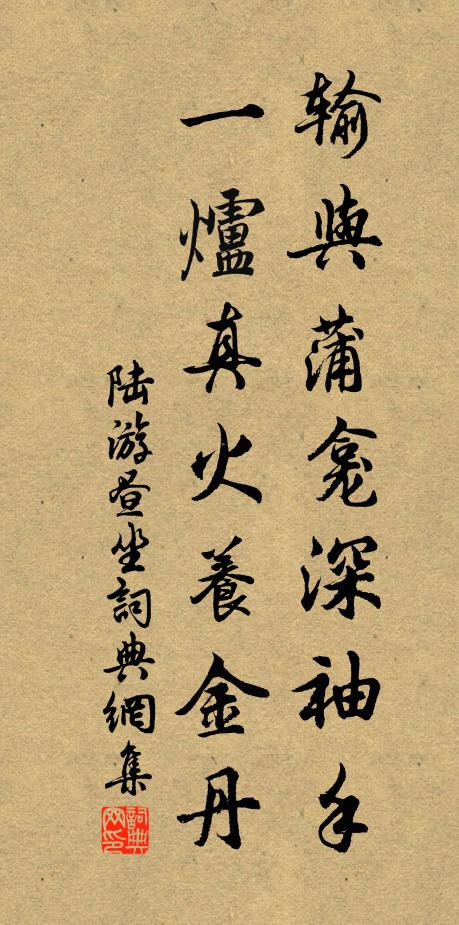 輸與蒲龕深袖手
一爐真火養金丹
陆游昼坐詞典網集
詞典网印